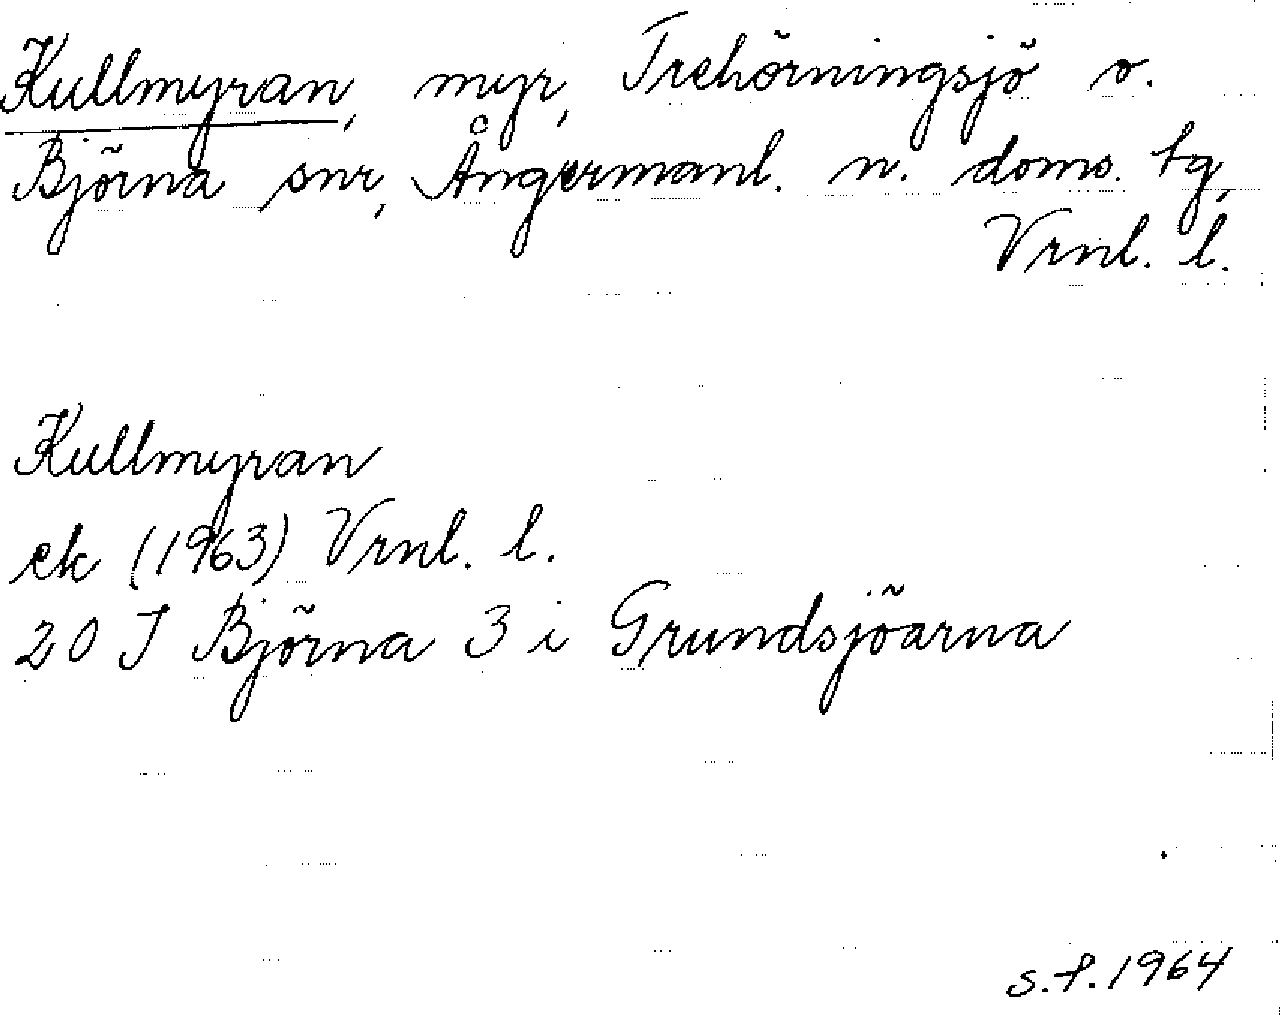 Kullmyran, myr, Trehörningsjö o.
Björna snr, Ångermanl. n. doms. tg,
Vrnl. l.
Kullmyran
ek (1963) Vrnl. l.
20 J Björna 3 i Grundsjöarna
s.f. 1964